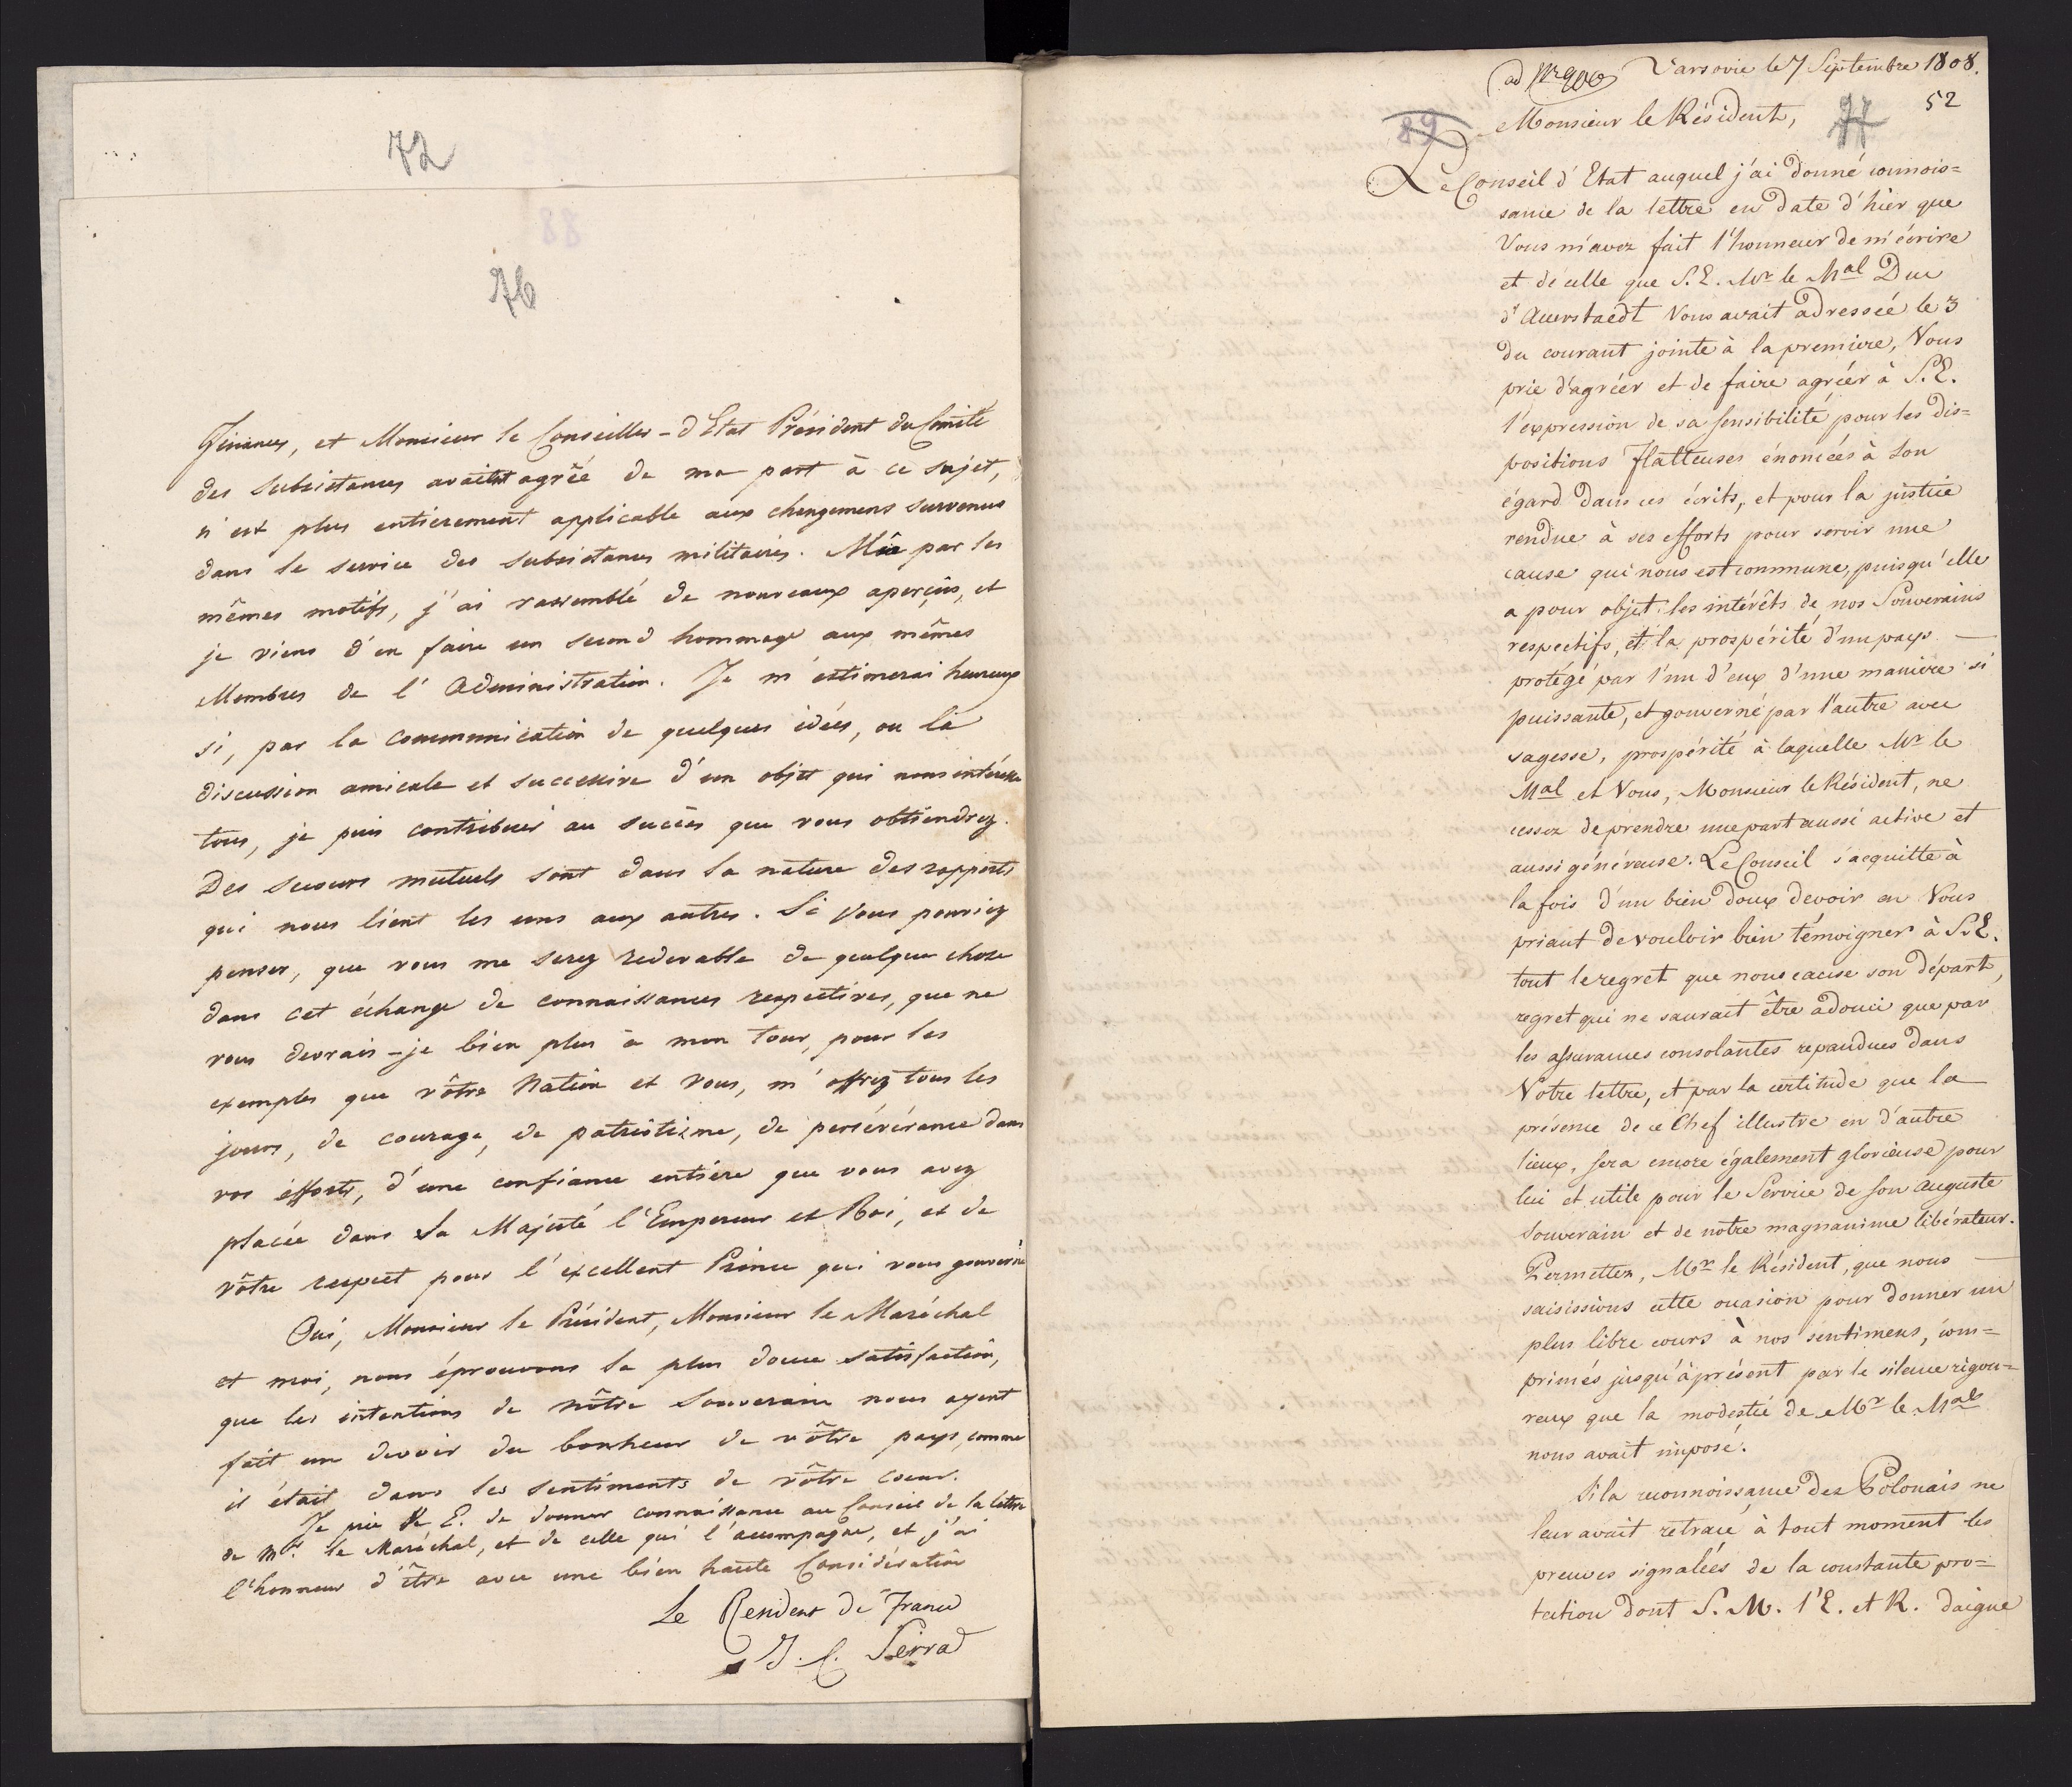 72
88
76
Finances, et Monsieur le Conseiller-d'Etat Président du Comité
des subsistances avaient agréé de ma part à ce sujet,
n'est plus entièrement applicable aux changemens survenus
dans le service des subsistances militaires. Mû par les
mêmes motifs, j'ai rassemblé de nouveaux aperçûs, et
je viens d'en faire un second hommage aux mêmes
Membres de l'Administration. Je m'estimerai heureux
si, par la communication de quelques idées, ou la
discussion amicale et successive d'un objet qui nous intéresse
tous, je puis contribuer au succès que vous obtiendrez.
Des secours mutuels sont dans la nature des rapports
qui nous lient les uns aux autres. Si Vous pouviez
penser, que vous me serez redevable de quelque chose
dans cet échange de connaissances respectives, que ne
vous devrais-je bien plus à mon tour, pour les
exemples que vôtre Nation et vous, m'offrez tous les
jours, de courage, de patriotisme, de persévérance dans
vos éfforts, d'une confiance entière que vous avez
placée dans Sa Majesté l'Empereur et Roi, et de
vôtre respect pour l'éxcellent Prince qui vous gouverne
Oui, Monsieur le Président, Monsieur le Maréchal
et moi, nous éprouvons la plus douce satisfaction,
que les intentions de nôtre Souverain nous ayent
fait un devoir du bonheur de vôtre pays, comme
il était dans les sentiments de vôtre coeur.
Je prie V. E. de donner connaissance au Conseil de la lettre
de Mr. le Maréchal, et de celle qui l'accompagne, et j'ai
l'honneur d'être avec une bien haute Considération
Le Resident de France
J. C. Serra
ad Nr 900 Varsovie le 7 Septembre 1808.
52
89 Monsieur le Résident, 77
Le Conseil d'Etat auquel j'ai donné connois=
sance de la lettre en date d'hier que
Vous m'avez fait l'honneur de m'écrire
et de celle que S. E. Mr le Mal Duc
d'Auerstaedt Vous avait adressée le 3
du courant jointe à la premiere, Vous
prie d'agréer et de faire agréer à S. E.
l'expression de sa sensibilité pour les dis=
positions flatteuses énoncées à son
égard dans ces écrits, et pour la justice
rendue à ses efforts pour servir une
cause qui nous est commune, puisqu'elle
a pour objet les intérêts de nos Souverains
respectifs, et la prospérité d'un pays
protégé par l'un d'eux d'une maniere si
puissante, et gouverné par l'autre avec
sagesse, prospérité à laquelle Mr le
Mal et Vous, Monsieur le Résident, ne
cessez de prendre une part aussi active et
aussi généreuse. Le Conseil s'acquitte à
la fois d'un bien doux devoir en Vous
priant de vouloir bien témoigner à S. E.
tout le regret que nous cause son départ,
regret qui ne saurait être adouci que par
les assurances consolantes repandues dans
Votre lettre, et par la certitude que la
présence de ce Chef illustre en d'autre
lieux, sera encore également glorieuse pour
lui et utile pour le Service de son auguste
Souverain et de notre magnanime libérateur.
Permettez, Mr le Résident, que nous
saisissions cette occasion pour donner un
plus libre cours à nos sentimens, com=
primés jusqu'à présent par le silence rigou=
reux que la modestie de Mr le Mal
nous avait imposé.
Si la reconnoissance des Polonais ne
leur avait retracé à tout moment les
preuves signalées de la constante pro=
tection dont S. M. l'E. et R. daigne